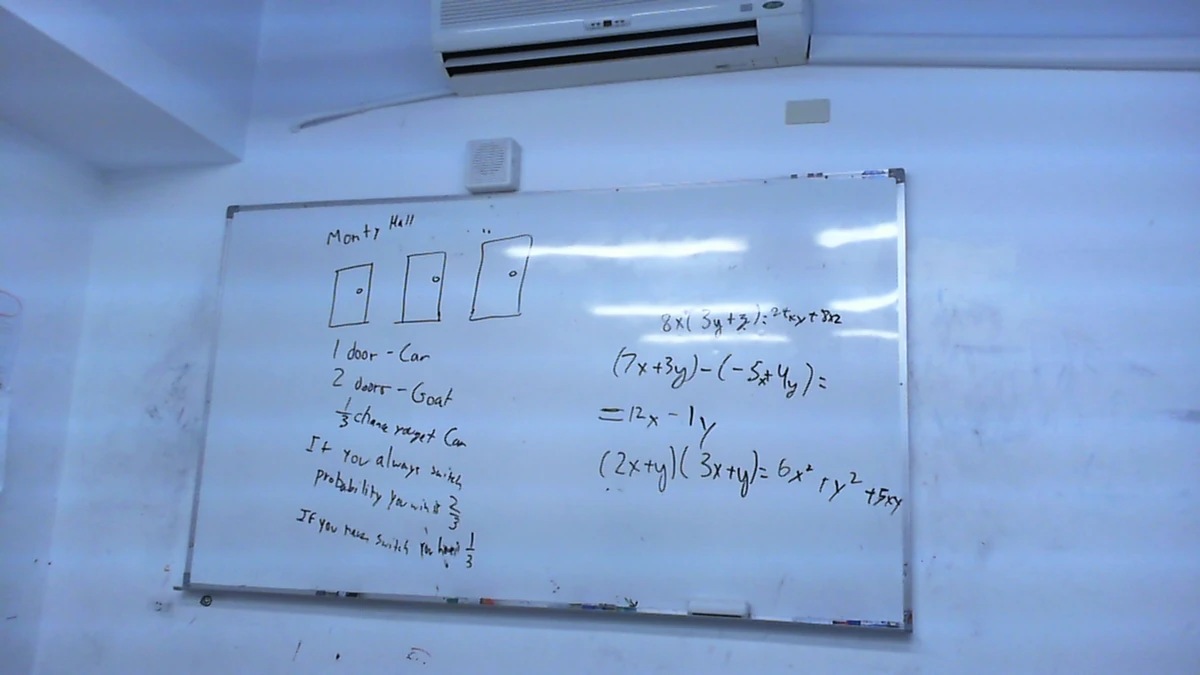 Monty Hall
1 door - Car
2 doors - Goat
1/3 chance you get Car
If you always switch
probability you win is 2/3
If you never switch you 1/3
8x(3y+z)=24xy+8xz
(7x+3y)-(-5x+4y)=
=12x-1y
(2x+y)(3x+y)=6x²+y²+5xy